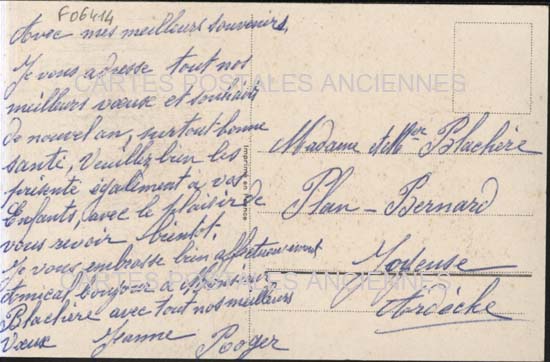 F06414
Avec mes meilleurs souvenirs,
Je vous adresse tout nos
meilleurs vœux et souhaits
de nouvel an, surtout bonne
santé, Veuillez bien les
présenté également à vos
Enfants, avec le plaisir de
vous revoir bientôt,
Je vous embrasse bien affectueusement
Amical bonjour à Monsieur
Blachère avec tout nos meilleurs
Vœux Jeanne Roger
Imprimé en France
Madame et Mr Blachère
Plan - Bernard
Joyeuse
Ardèche
CARTES POSTALES ANCIENNES
CARTES POSTALES ANCIENNES